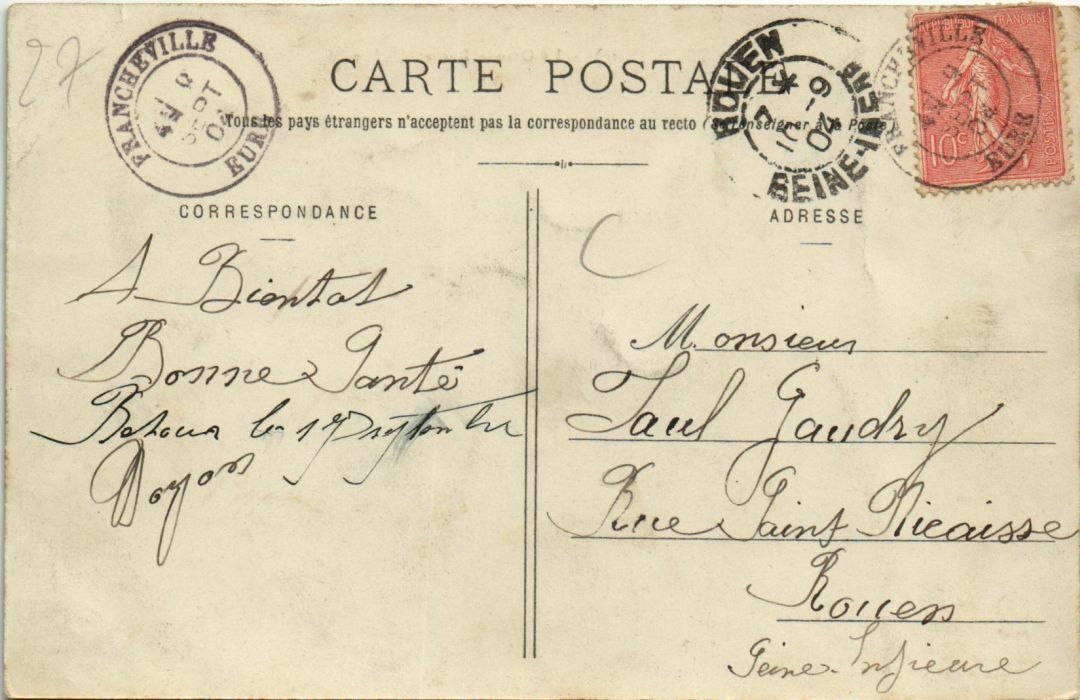 27
FRANCHEVILLE
8
SEPT
04
EURE
CARTE POSTALE
Tous les pays étrangers n'acceptent pas la correspondance au recto (Se renseigner à la Poste
ROUEN
9
04
REPUBLIQUE FRANÇAISE
10c
POSTES
FRANCHEVILLE
EURE
CORRESPONDANCE
ADRESSE
A Bientot
Bonne Santé
le 17 Septembre
Doyon
Monsieur
Paul Gaudry
Rue Saint Nicaisse
Rouen
Seine Infieure